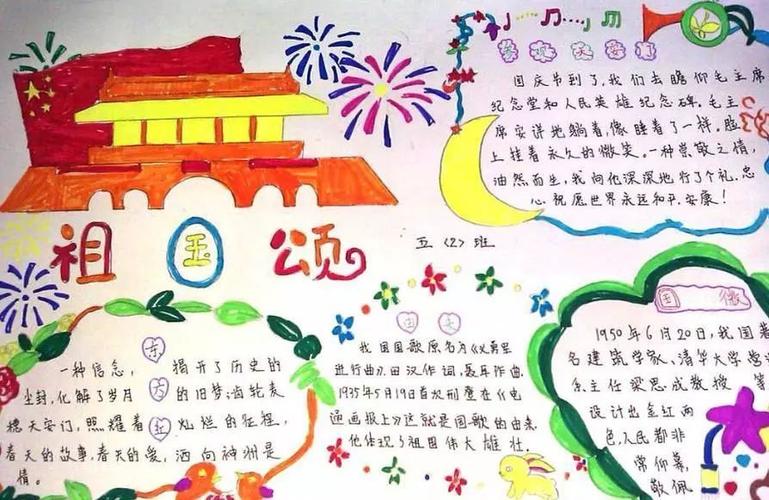 祖国颂
五〈2〉班
参观天安门
国庆节到了,我们去瞻仰毛主席
纪念堂和人民英雄纪念碑,毛主
席安详地躺着,像睡着了一样,脸
上挂着永久的微笑。一种崇敬之情,
油然而生,我向他深深地行了个礼.忠
心祝愿世界永远和平.安康!
东方红
一种信念,揭开了历史的
尘封,化解了岁月的旧梦;齿轮麦
穗天安门,照耀着灿烂的征程,
春天的故事,春天的爱,洒向神洲是
情。
由来
我国国歌原名为《义勇军
进行曲》.田汉作词,聂耳作曲.
1935年5月19日首次刊登在《电
通画报上》这就是国歌的由来.
他体现了祖国伟大雄壮.
国徽
1950年6月20日,我国著
名建筑学家、清华大学营
系主任梁思成教授等
设计出金红两
色,人民都非
常仰慕,
敬佩